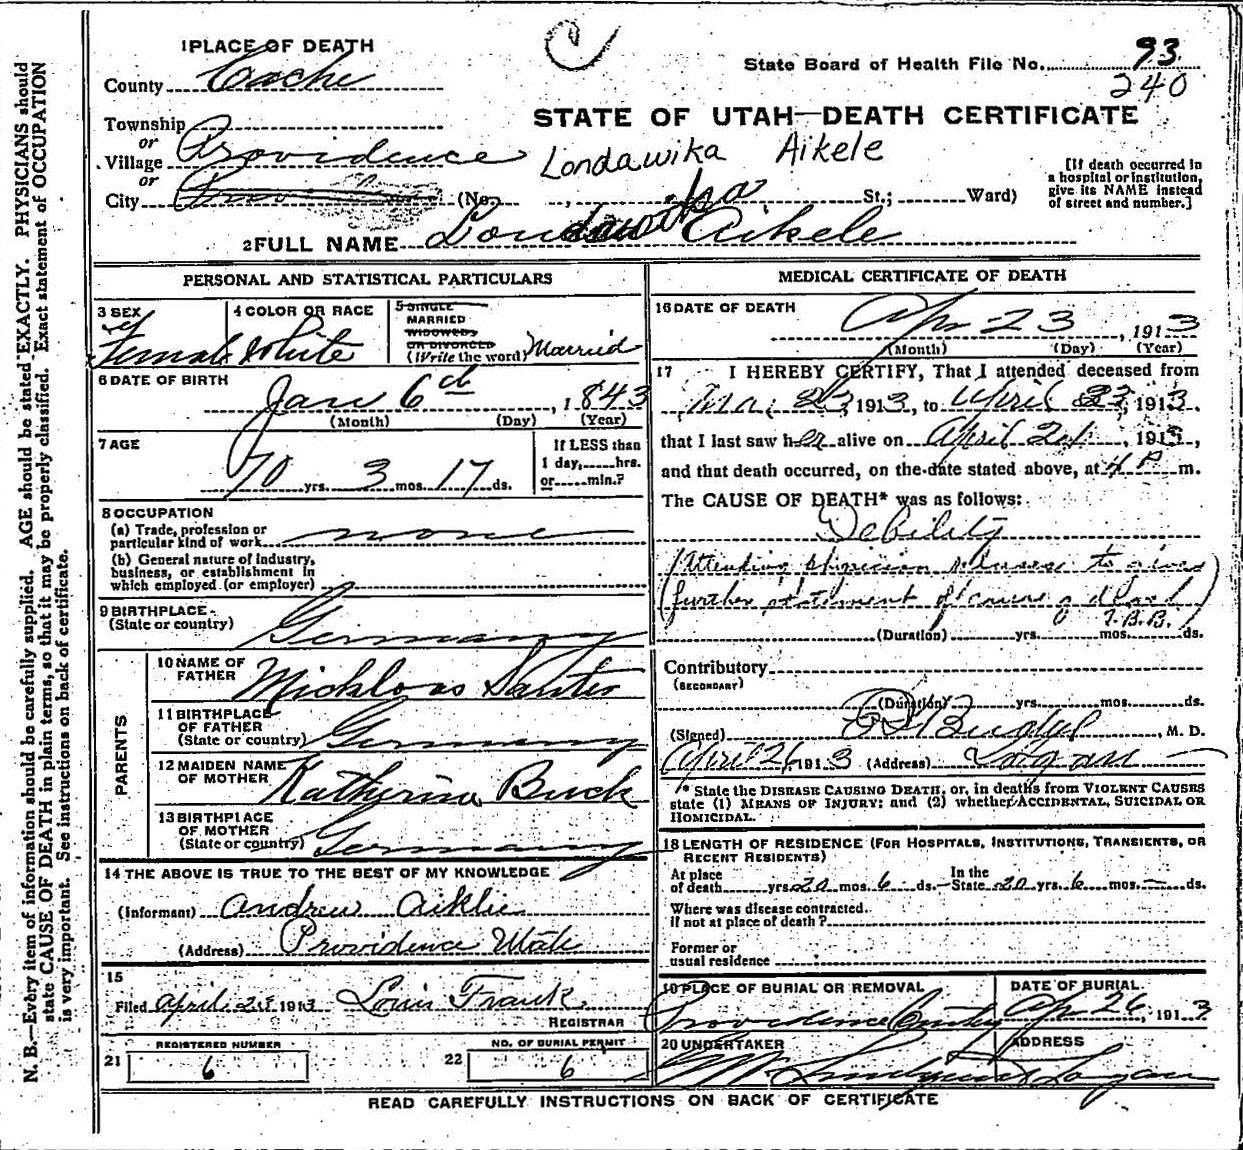 1 PLACE OF DEATH
County Cache
State Board of Health File No. 93
240
STATE OF UTAH—DEATH CERTIFICATE
Township
or
Village Providence
Londawika Aikele
or
City (No. , St.; Ward)
[If death occurred in a hospital or institution, give its NAME instead of street and number.]
2 FULL NAME Londawika Aikele
PERSONAL AND STATISTICAL PARTICULARS
3 SEX Female
4 COLOR OR RACE White
5 SINGLE
MARRIED
WIDOWED
OR DIVORCED
(Write the word) Married
6 DATE OF BIRTH
Jan 6th, 1843
(Month) (Day) (Year)
7 AGE
70 yrs. 3 mos. 17 ds.
If LESS than
1 day, hrs.
or min.?
8 OCCUPATION
(a) Trade, profession or
particular kind of work none
(b) General nature of industry,
business, or establishment in
which employed (or employer)
9 BIRTHPLACE
(State or country) Germany
PARENTS
10 NAME OF
FATHER Mickloas Sauter
11 BIRTHPLACE
OF FATHER
(State or country) Germany
12 MAIDEN NAME
OF MOTHER Katherina Buck
13 BIRTHPLACE
OF MOTHER
(State or country) Germany
14 THE ABOVE IS TRUE TO THE BEST OF MY KNOWLEDGE
(Informant) Andrew Aiklie
(Address) Providence Utah
15
Filed April 25 1913 Louis Frank
REGISTRAR
21 REGISTERED NUMBER
6
22 NO. OF BURIAL PERMIT
6
MEDICAL CERTIFICATE OF DEATH
16 DATE OF DEATH
Apr 23, 1913
(Month) (Day) (Year)
17 I HEREBY CERTIFY, That I attended deceased from
1913, to April 23, 1913.
that I last saw her alive on April 21, 1913,
and that death occurred, on the date stated above, at 4 P m.
The CAUSE OF DEATH* was as follows:
Debility
(Attending physician refuses to give
further statement of cause of death)
T.B.B.
(Duration) yrs. mos. ds.
Contributory
(SECONDARY)
(Duration) yrs. mos. ds.
(Signed) Budge, M. D.
April 26, 1913 (Address) Logan
* State the DISEASE CAUSING DEATH, or, in deaths from VIOLENT CAUSES
state (1) MEANS OF INJURY; and (2) whether ACCIDENTAL, SUICIDAL OR
HOMICIDAL.
18 LENGTH OF RESIDENCE (FOR HOSPITALS, INSTITUTIONS, TRANSIENTS, OR
RECENT RESIDENTS)
At place
of death yrs. 20 mos. 6 ds.
In the
State 20 yrs. 6 mos. — ds.
Where was disease contracted
if not at place of death?
Former or
usual residence
19 PLACE OF BURIAL OR REMOVAL
Providence
DATE OF BURIAL
Ap 26, 1913
20 UNDERTAKER
ADDRESS
Logan
READ CAREFULLY INSTRUCTIONS ON BACK OF CERTIFICATE
N. B.—Every item of information should be carefully supplied. AGE should be stated EXACTLY. PHYSICIANS should
state CAUSE OF DEATH in plain terms, so that it may be properly classified. Exact statement of OCCUPATION
is very important. See instructions on back of certificate.